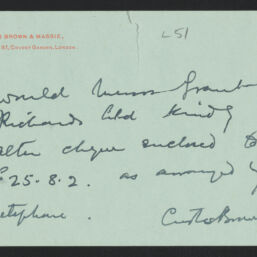 BROWN & MASSIE,
COVENT GARDEN, LONDON.
L51
would Messrs Grant
Richards Ltd kindly
alter cheque enclosed
£25-8-2. as arranged
telephone.
Curtis Brown